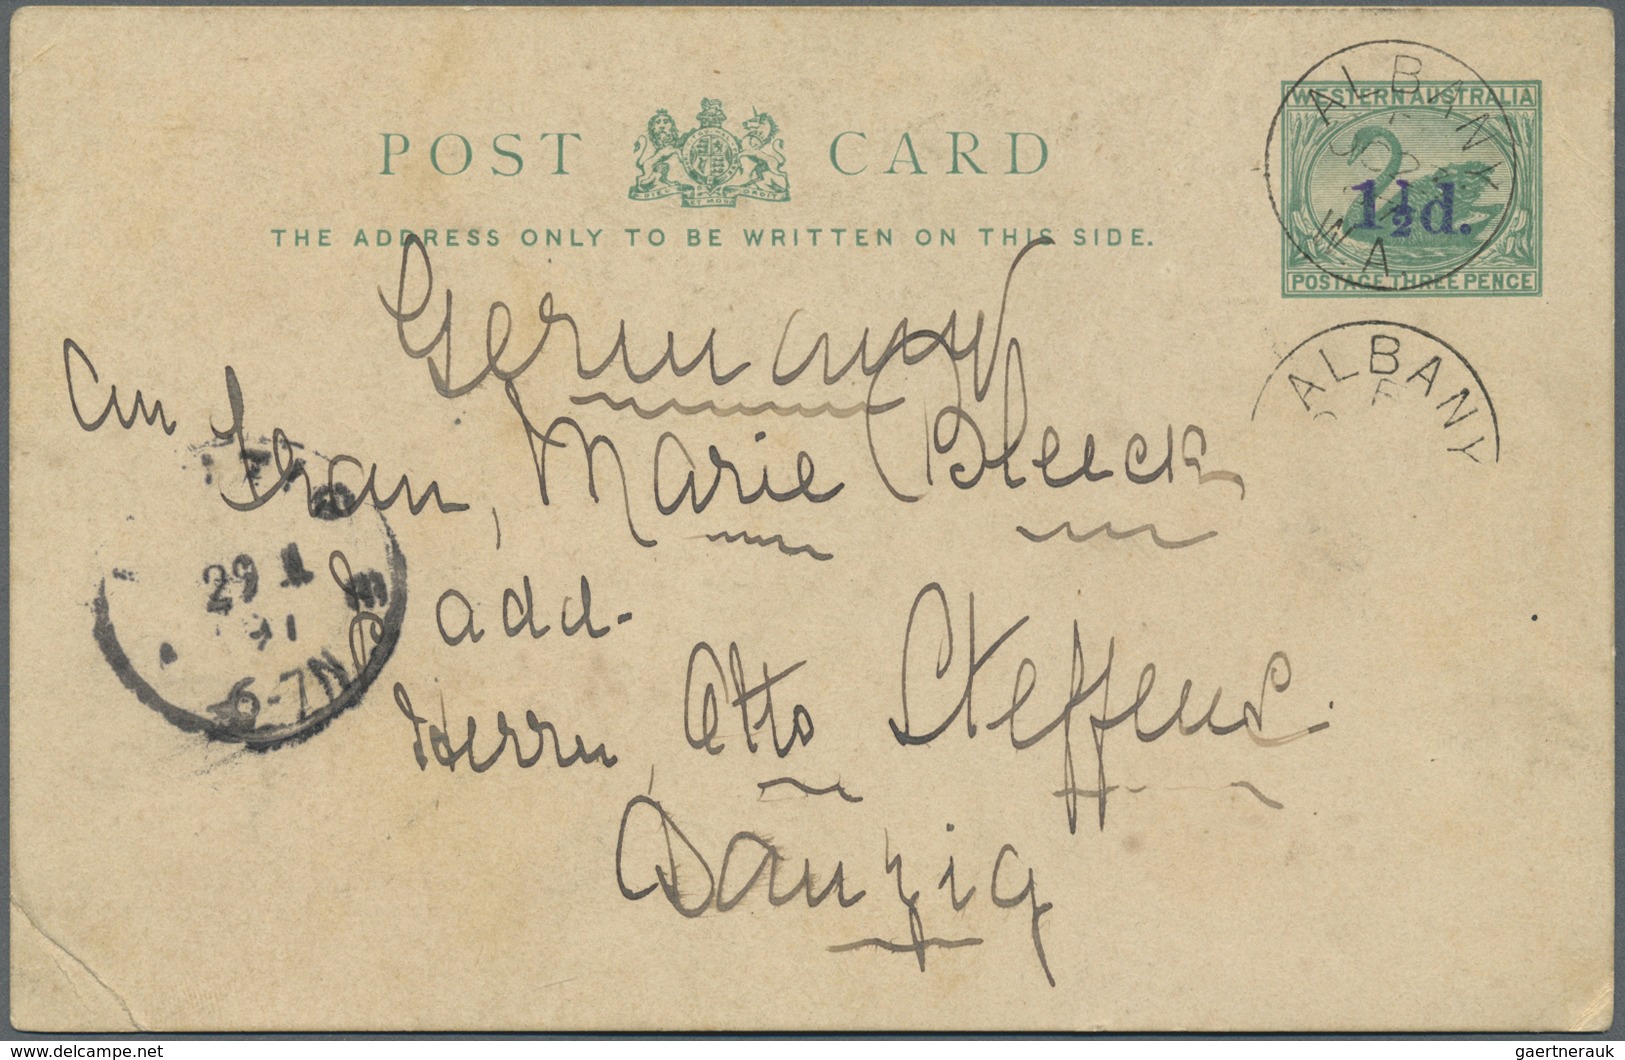 POST CARD
DIEU ET MON DROIT
THE ADDRESS ONLY TO BE WRITTEN ON THIS SIDE.
WESTERN AUSTRALIA
1½d.
POSTAGE THREE PENCE
ALBANY
W.A.
ALBANY
Germany
An Frau, Marie Bleeck
add.
Herrn, Otto Steffens.
Danzig
29 1
91
6-7N
www.delcampe.net
gaertnerauk